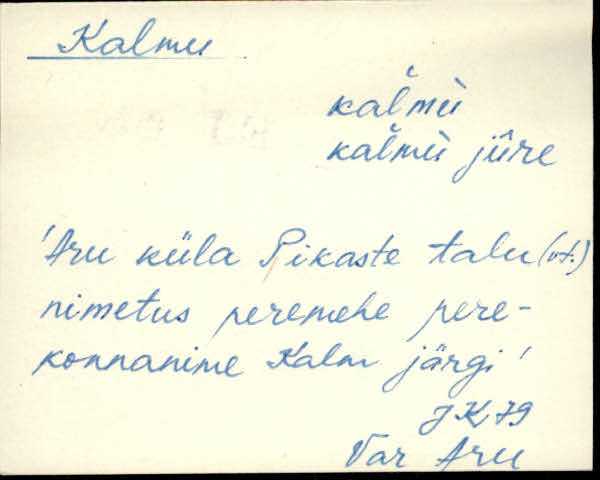 Kalmu
kalmù
kalmù jûre
'Aru küla Pikaste talu (vt.)
nimetus peremehe pere-
konnanime Kalm järgi'
JK 79
Var Aru